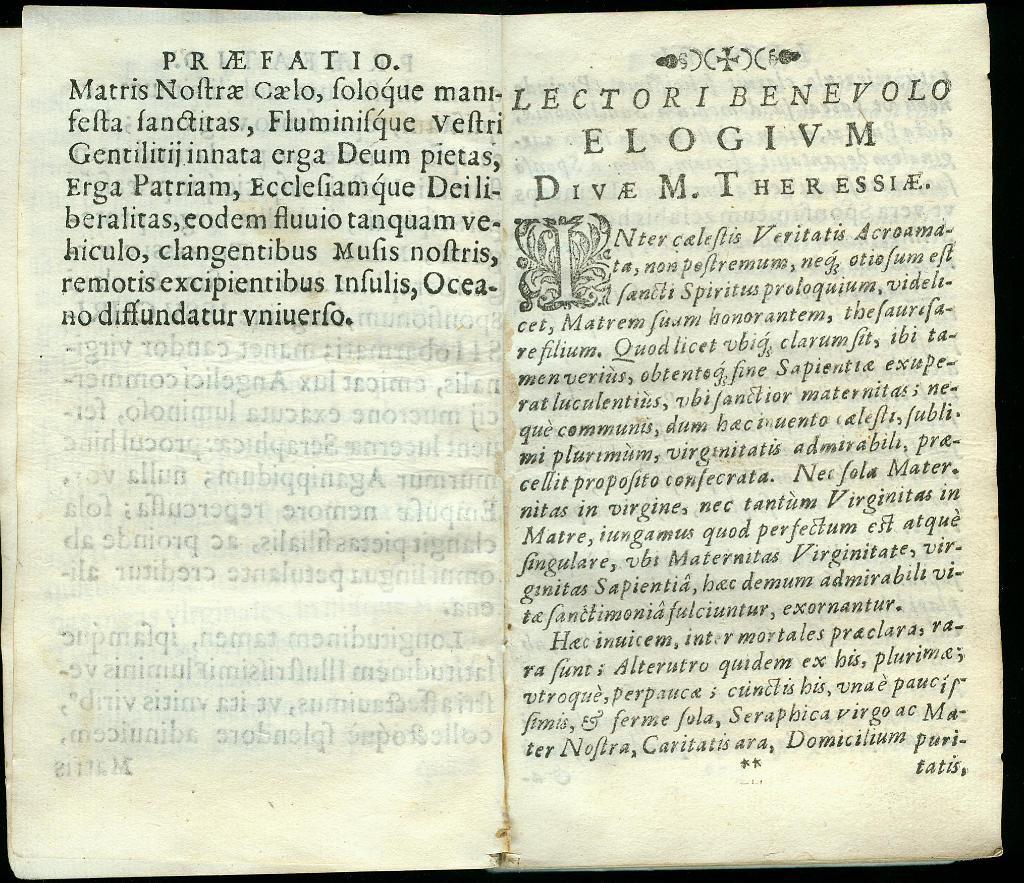 PRÆFATIO.
Matris Noſtræ Cælo, ſoloq́ue mani-
feſta ſanctitas, Fluminiſq́ue Veſtri
Gentilitij innata erga Deum pietas,
Erga Patriam, Eccleſiamq́ue Dei li-
beralitas, eodem fluuio tanquam ve-
hiculo, clangentibus Muſis noſtris,
remotis excipientibus Inſulis, Ocea-
no diffundatur vniuerſo.
LECTORI BENEVOLO
ELOGIVM
DIVÆ M. THERESSIÆ.
INter cæleſtis Veritatis Acroama-
ta, non poſtremum, neq́; otioſum eſt
ſancti Spiritus proloquium, videli-
cet, Matrem ſuam honorantem, theſauriſa-
re filium. Quod licet vbiq́; clarum ſit, ibi ta-
men veriùs, obtentoq́; ſine Sapientiæ exupe-
rat luculentiùs, vbi ſanctior maternitas; ne-
què communis, dum hæc inuento cæleſti, ſubli-
mi plurimùm, virginitatis admirabili, præ-
cellit propoſito conſecrata. Nec ſola Mater-
nitas in virgine, nec tantùm Virginitas in
Matre, iungamus quod perfectum eſt atquè
ſingulare, vbi Maternitas Virginitate, vir-
ginitas Sapientiâ, hæc demum admirabili vi-
tæ ſanctimoniâ fulciuntur, exornantur.
Hæc inuicem, inter mortales præclara, ra-
ra ſunt; Alterutro quidem ex his, plurimæ;
vtroquè, perpaucæ; cunctis his, vna è pauciſ-
ſimis, & ferme ſola, Seraphica virgo ac Ma-
ter Noſtra, Caritatis ara, Domicilium puri-
** tatis,